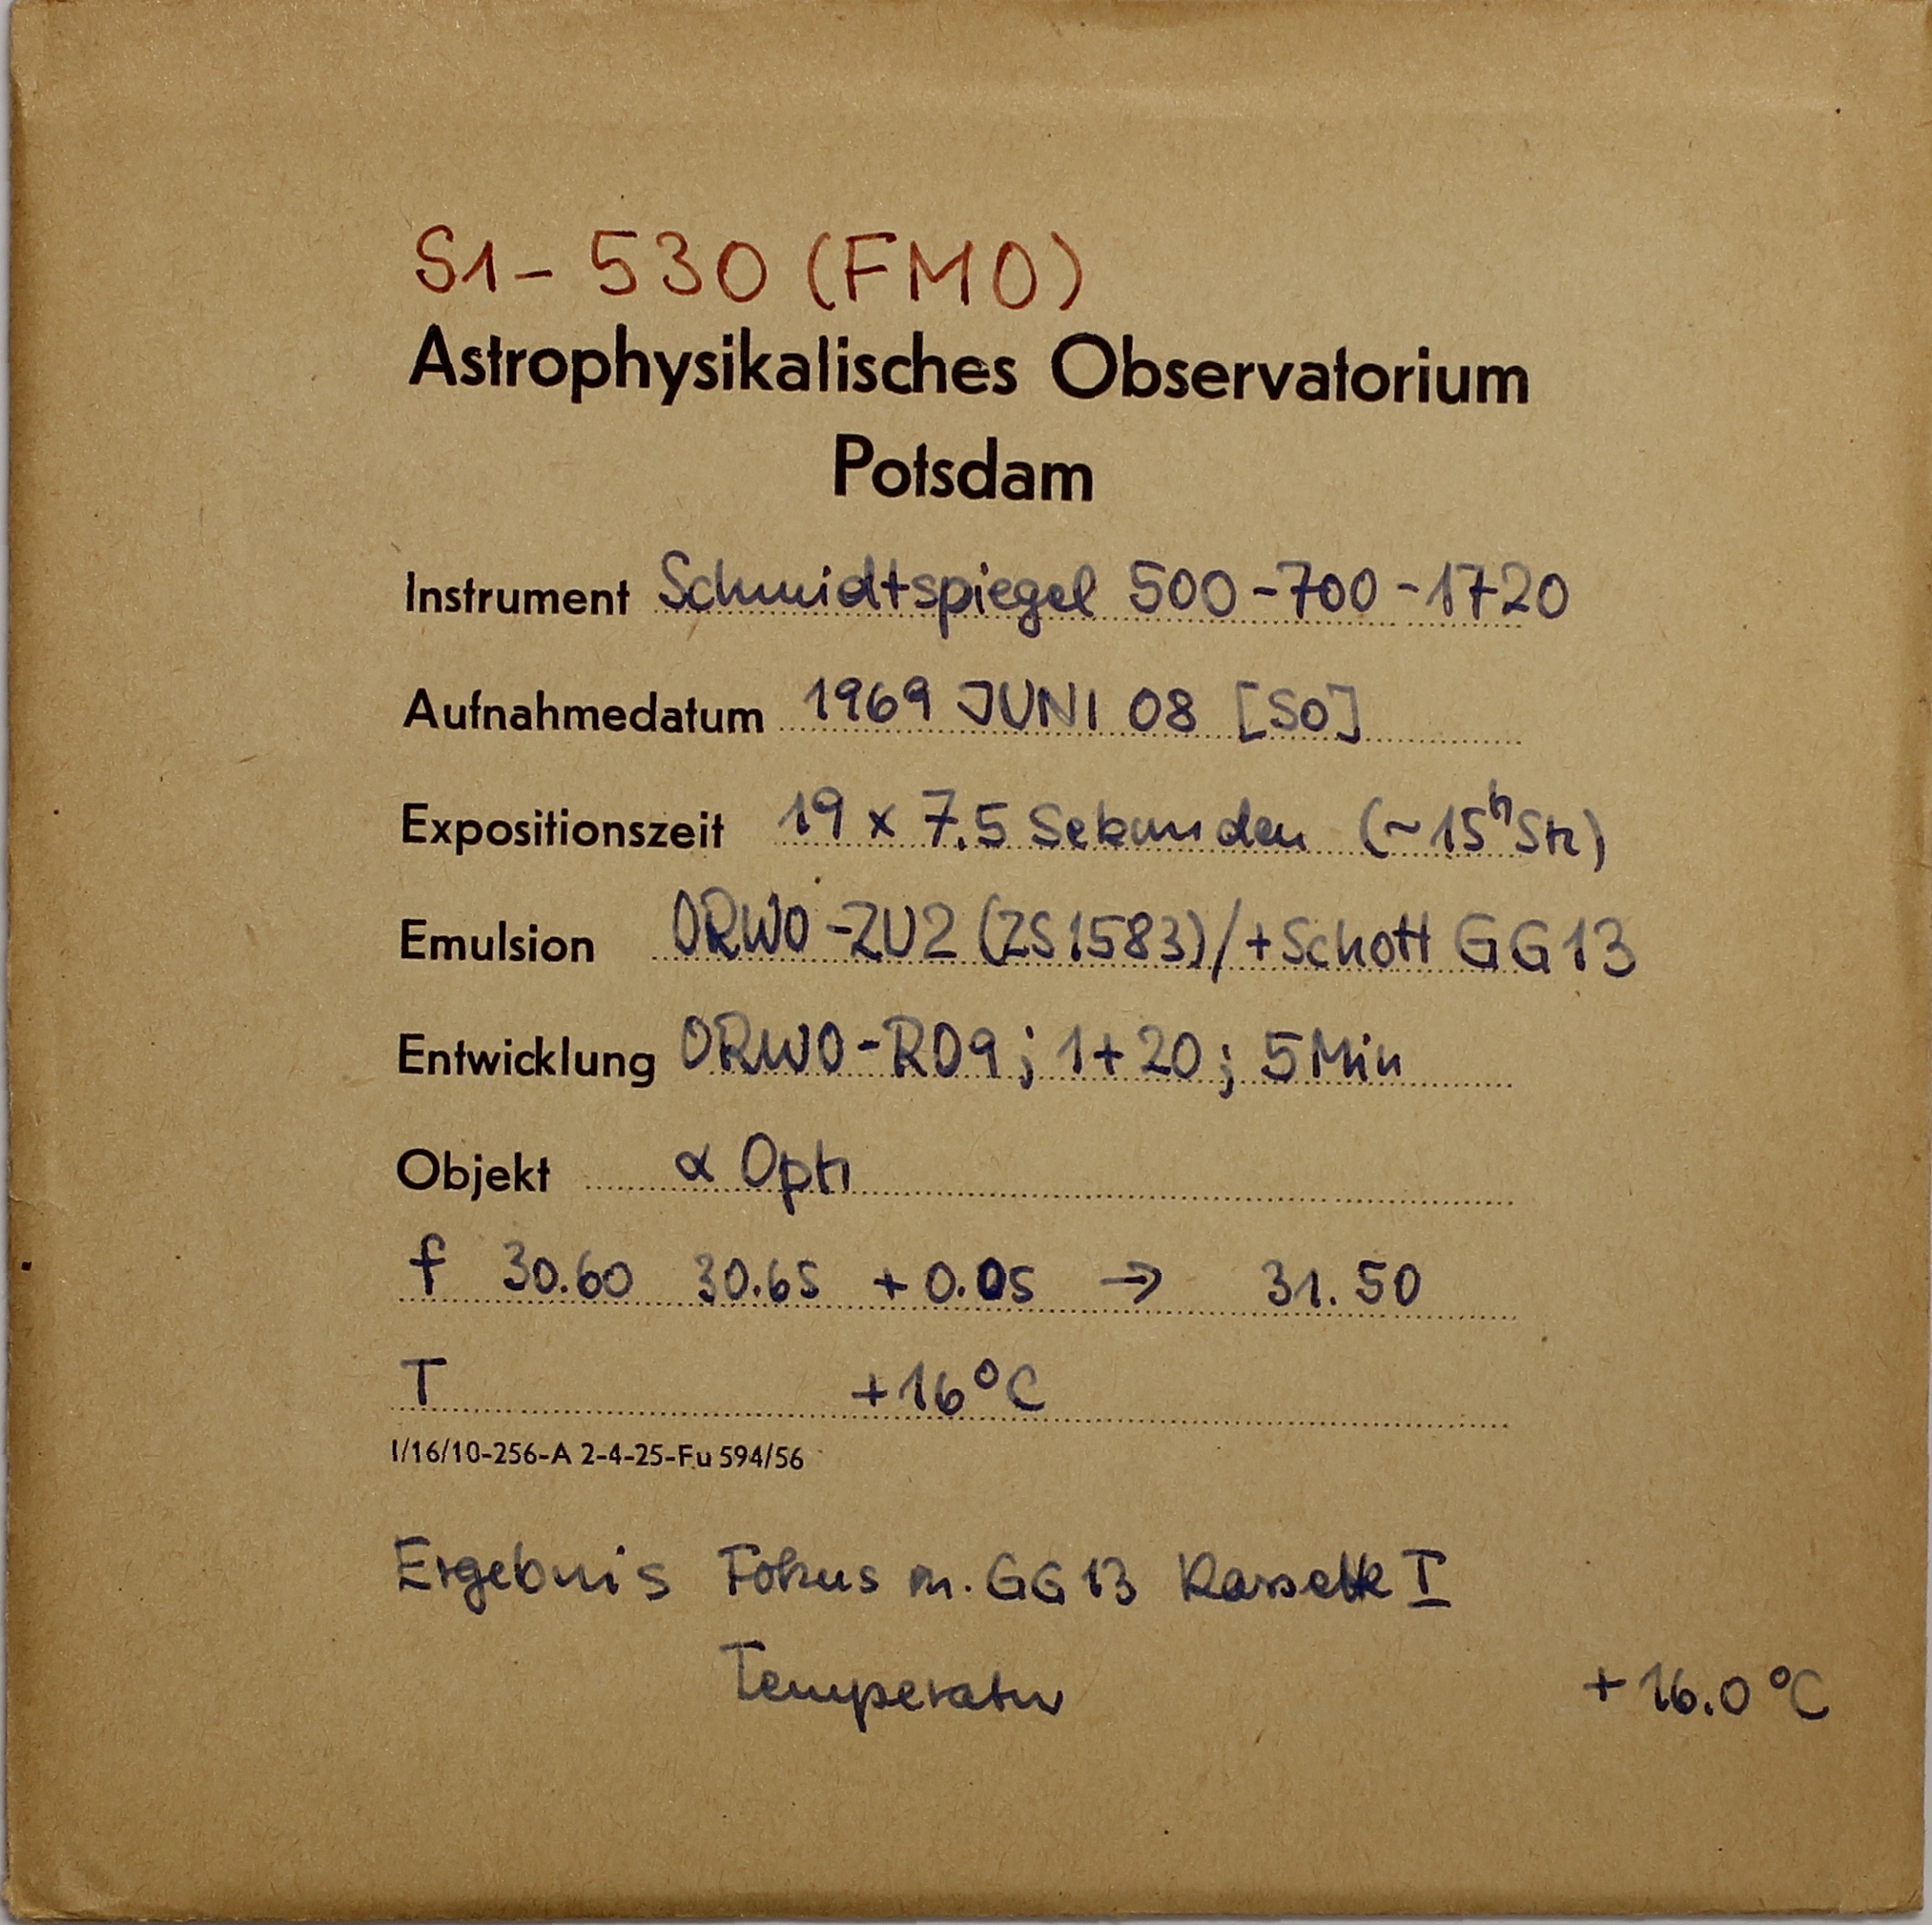 S1-530 (FMO)
Astrophysikalisches Observatorium
Potsdam
Instrument Schmidtspiegel 500-700-1720
Aufnahmedatum 1969 JUNI 08 [SO]
Expositionszeit 19 x 7.5 Sekunden (~15ʰ Str)
Emulsion ORWO-ZU2 (ZS1583)/+Schott GG13
Entwicklung ORWO-R09; 1+20; 5 Min
Objekt α Oph
f 30.60 30.65 +0.05 → 31.50
T +16°C
I/16/10-256-A 2-4-25-Fu 594/56
Ergebnis Fokus m. GG 13 Kassette I
Temperatur +16.0 °C